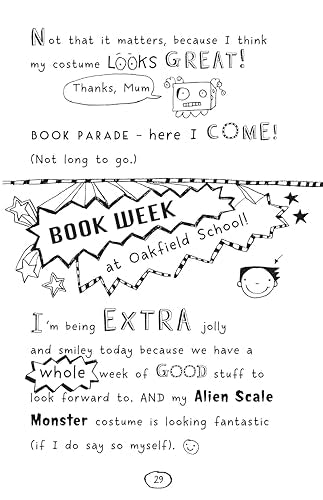 Not that it matters, because I think
my costume LOOKS GREAT!
Thanks, Mum.
BOOK PARADE – here I COME!
(Not long to go.)
BOOK WEEK
at Oakfield School!
I'm being EXTRA jolly
and smiley today because we have a
whole week of GOOD stuff to
look forward to. AND my Alien Scale
Monster costume is looking fantastic
(if I do say so myself).
29